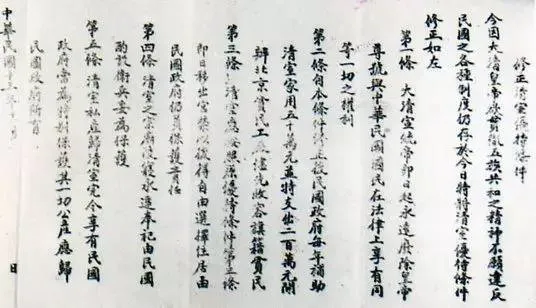 修正清室優待條件
今因大清皇帝欲貫徹五族共和之精神不願違反
民國之各種制度仍存於今日特將清室優待條件
修正如左
第一條 大清宣統帝即日起永遠廢除皇帝
尊號與中華民國國民在法律上享有同
等一切之權利
第二條 自本條件修正後民國政府每年補助
清室家用五十萬元並特支出二百萬元開
辦北京貧民工廠儘先收容旗籍貧民
第三條 清室應按照原優待條件第三條
即日移出宮禁以後得自由選擇住居但
民國政府仍負保護責任
第四條 清室之宗廟陵寢永遠奉祀由民國
酌設衛兵妥為保護
第五條 清室私產歸清室完全享有民國
政府當為特別保護其一切公產應歸
民國政府所有
中華民國十三年十一月 日